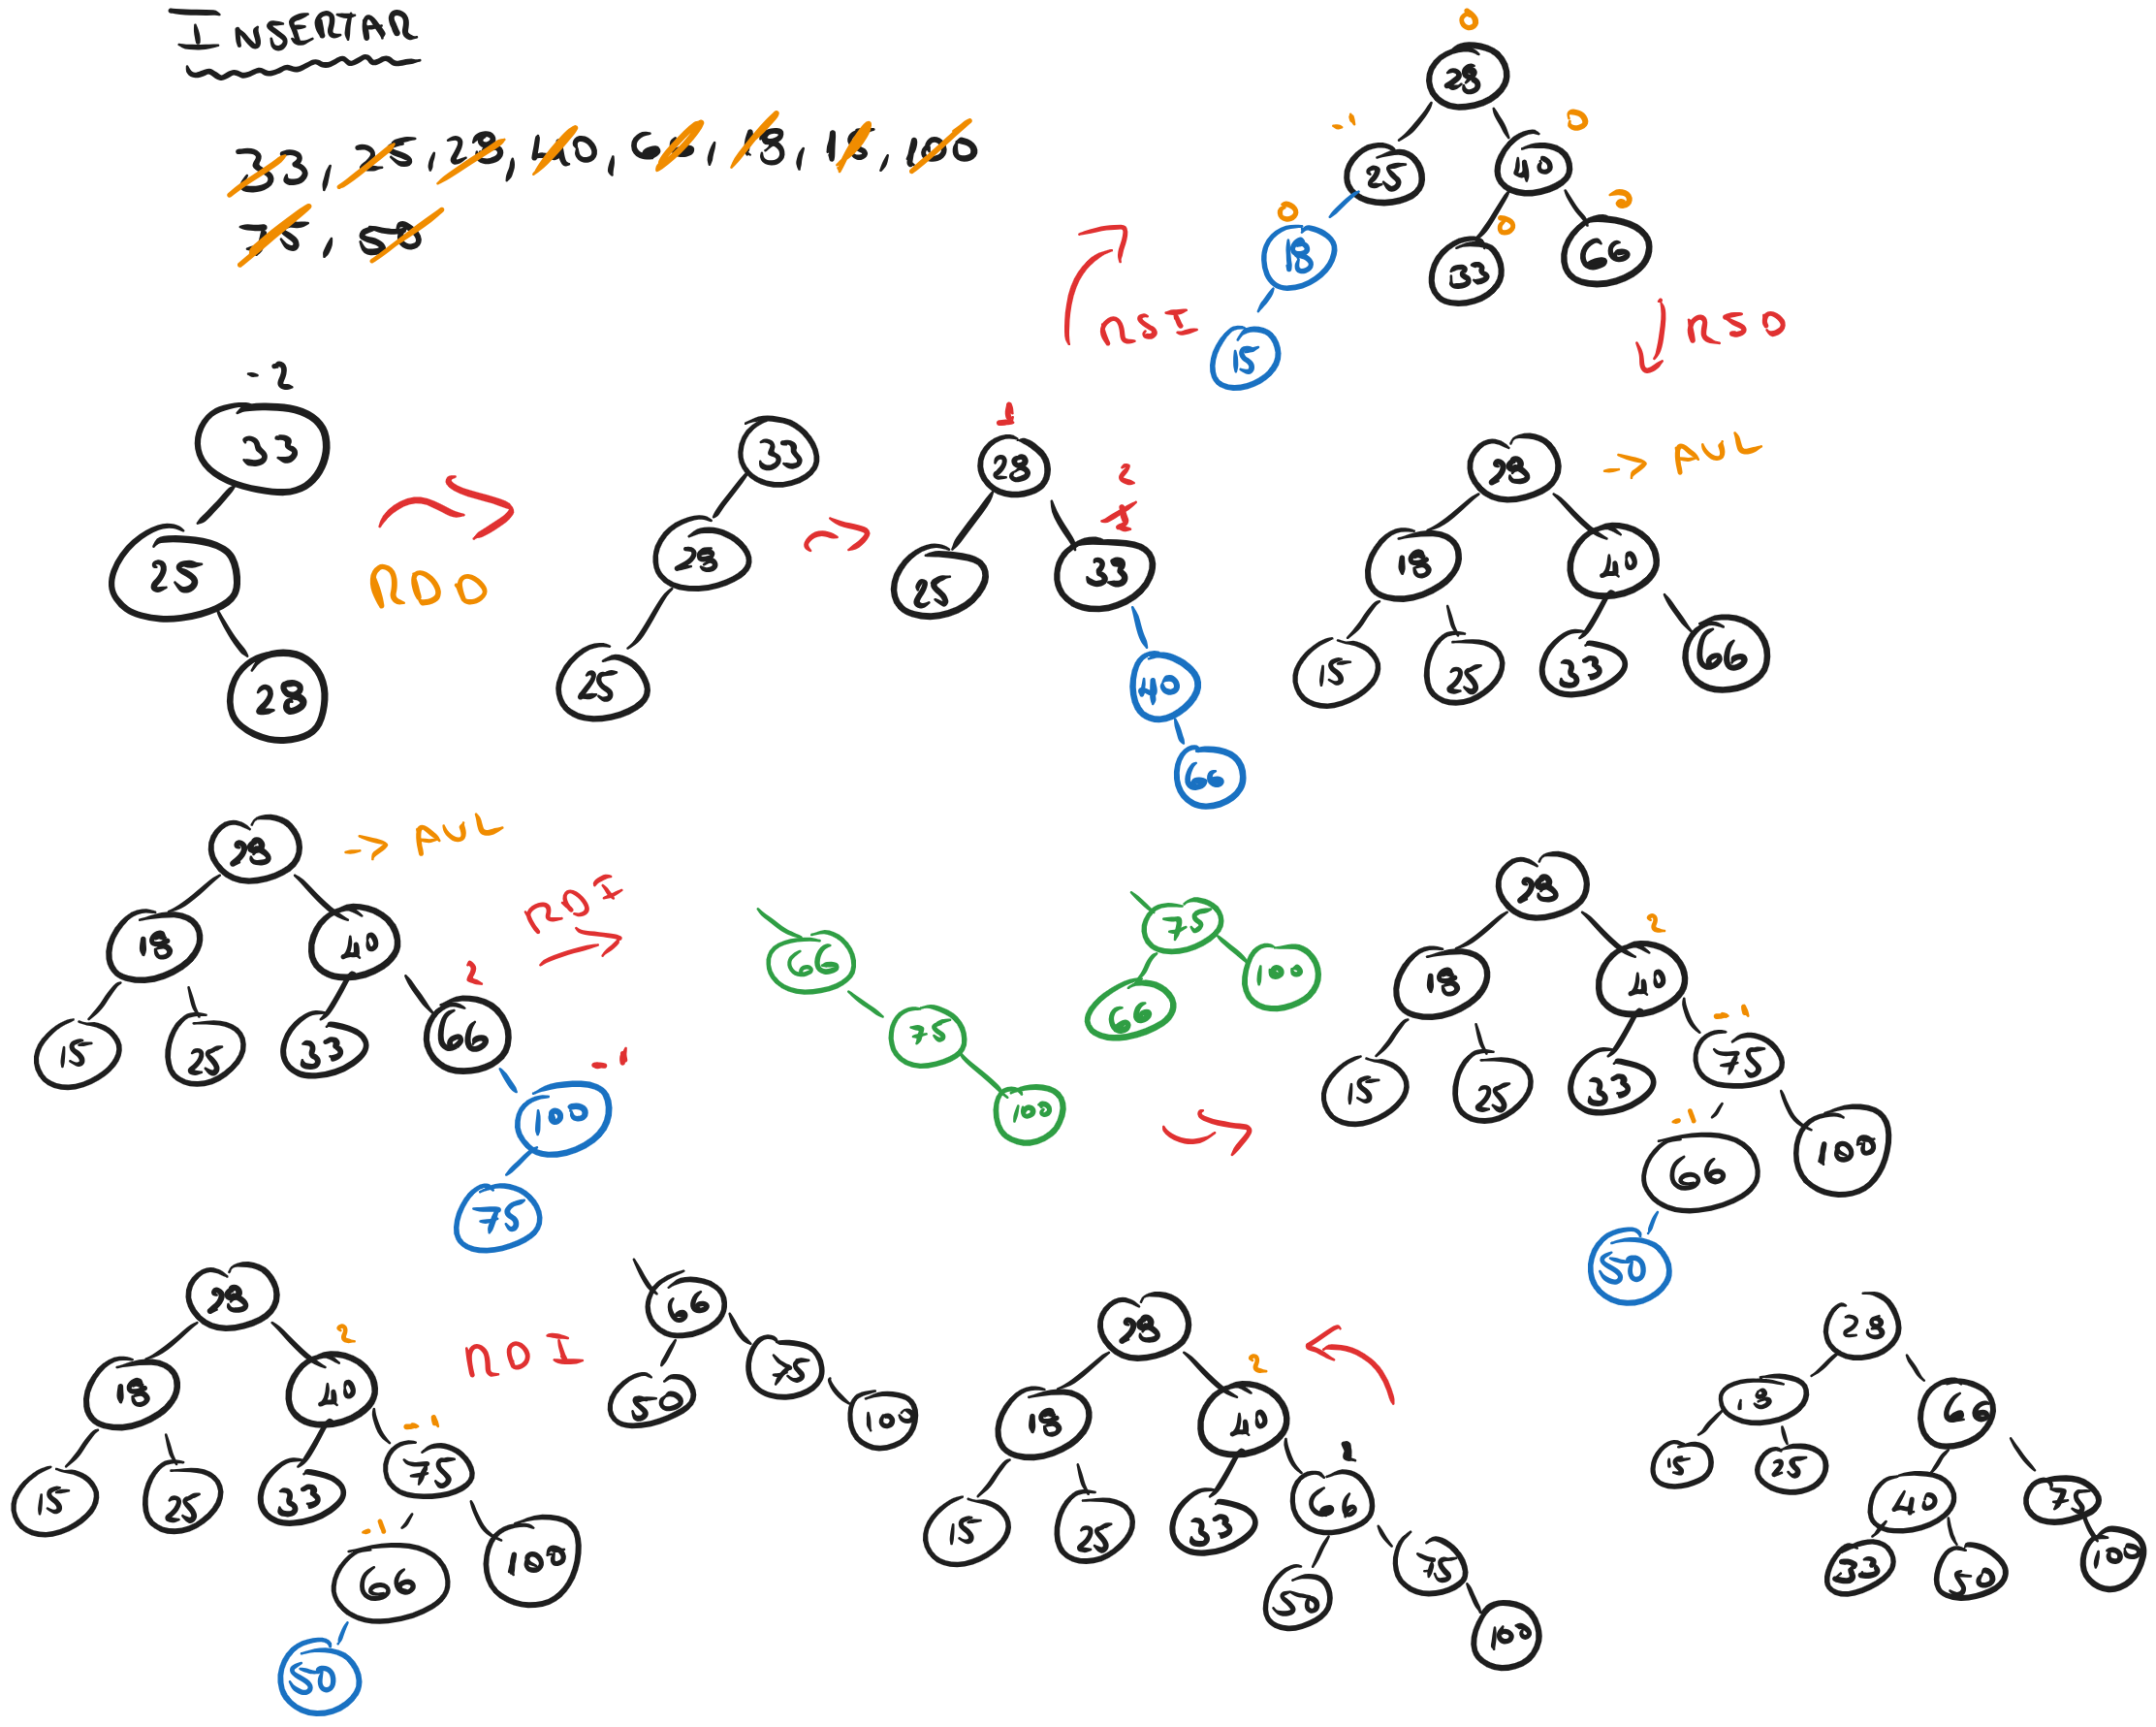 INSERTAR
33, 25, 28, 40, 66, 18, 15, 100
75, 50
0
28
-1
0
25
40
0
0
0
18
33
66
15
RSI
RSD
-2
33
25
28
RDD
33
28
25
1
28
2
1
25
33
40
66
28
-> AVL
18
40
15
25
33
66
28
-> AVL
18
40
15
25
33
2
66
-1
100
75
RDI
66
75
100
75
66
100
28
18
2
40
15
25
33
-1
75
-1
66
100
50
28
18
2
40
15
25
33
-1
75
-1
66
100
50
RDI
66
50
75
100
28
18
2
40
15
25
33
2
66
50
75
100
28
18
66
15
25
40
75
33
50
100